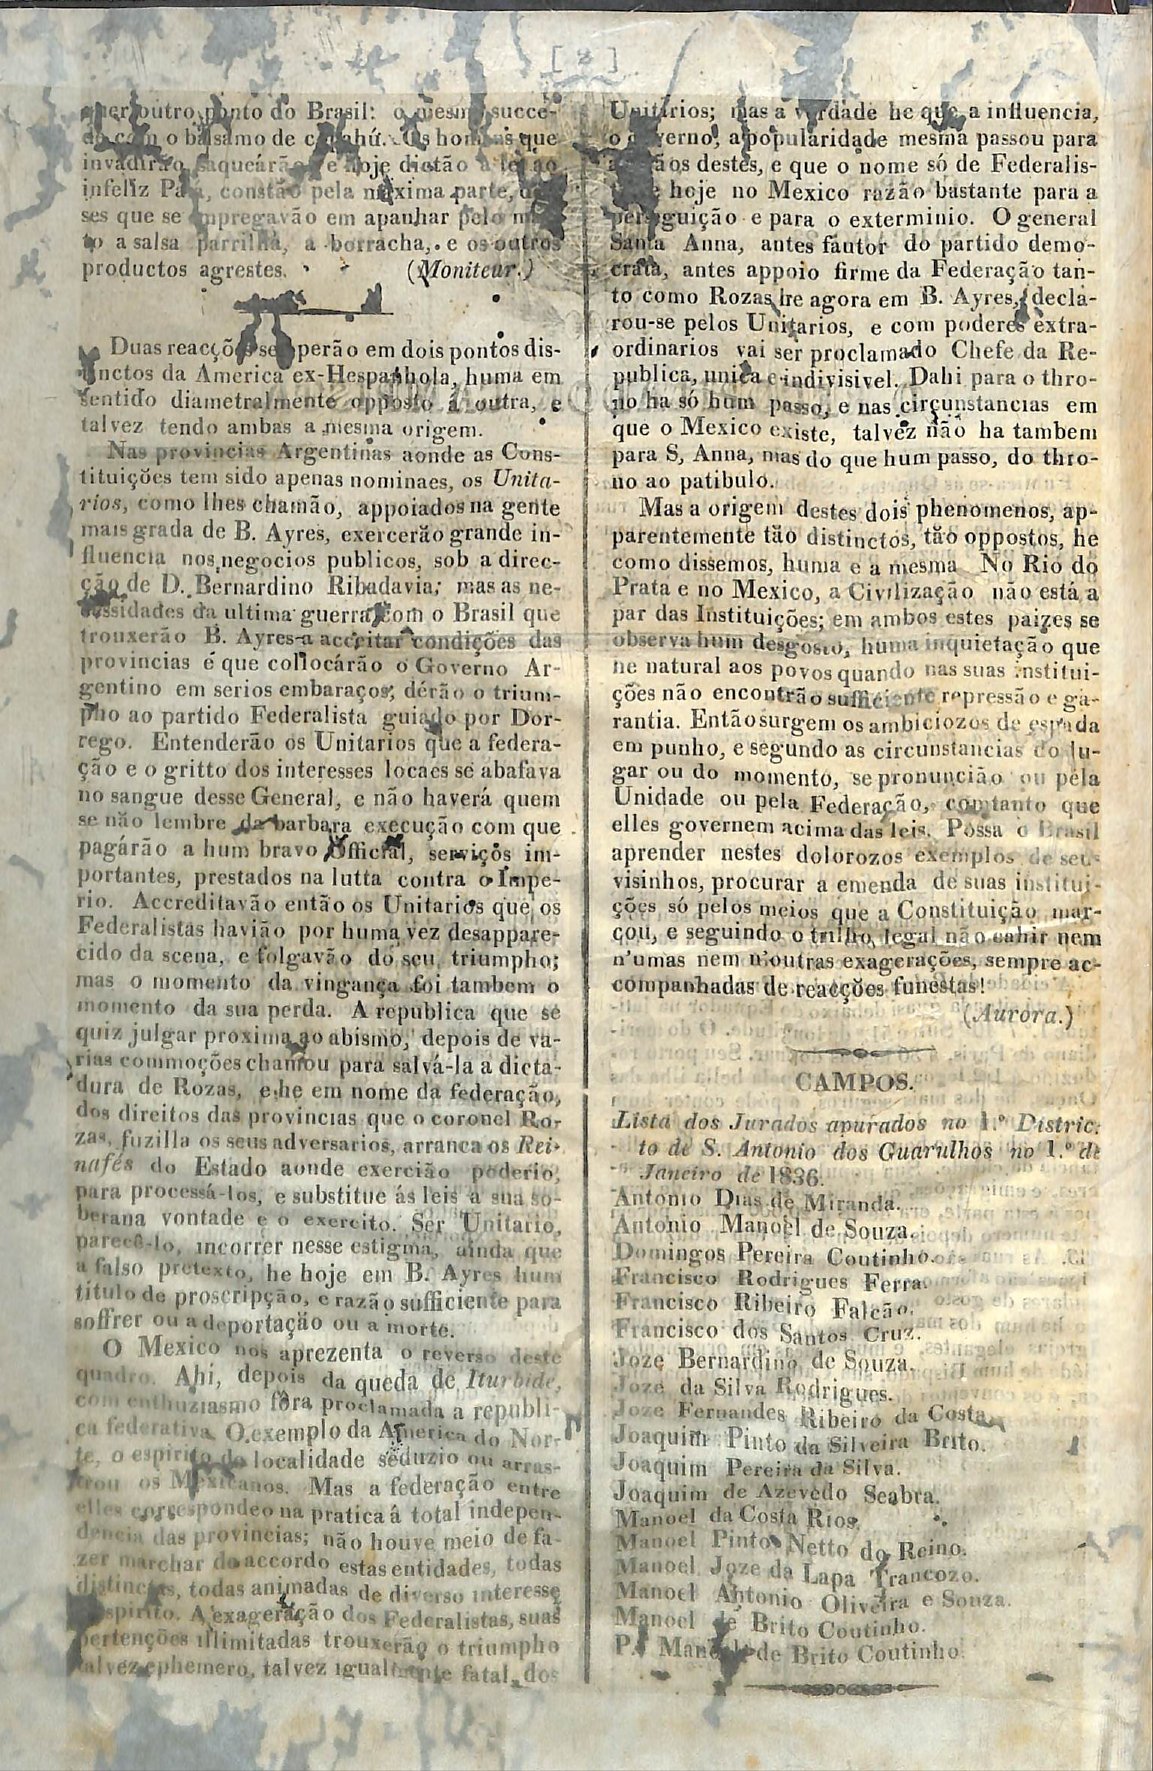 [ 2 ]
quer outro ponto do Brasil: o mesmo succe-
de com o balsamo de cupahú. Os homens que
invadirão, saqueárão, e hoje dictão a lei ao
infeliz Pará, constão pela maxima parte,
ses que se empregavão em apanhar pelo mat-
to a salsa parrilha, a borracha, e os outros
productos agrestes. (Moniteur.)
Duas reacções se operão em dois pontos dis-
tinctos da America ex-Hespanhola, huma em
sentido diametralmente opposto á outra, e
talvez tendo ambas a mesma origem.
Nas provincias Argentinas aonde as Cons-
tituições tem sido apenas nominaes, os Unita-
rios, como lhes chamão, appoiados na gente
mais grada de B. Ayres, exercerão grande in-
fluencia nos negocios publicos, sob a direc-
ção de D. Bernardino Ribadavia; mas as ne-
cessidades da ultima guerra com o Brasil que
trouxerão B. Ayres a acceitar condições das
provincias é que collocárão o Governo Ar-
gentino em serios embaraços; dérão o trium-
pho ao partido Federalista guiado por Dor-
rego. Entenderão os Unitarios que a federa-
ção e o gritto dos interesses locaes se abafava
no sangue desse General, e não haverá quem
se não lembre da barbara execução com que
pagárão a hum bravo Official, serviços im-
portantes, prestados na lutta contra o Impe-
rio. Accreditavão então os Unitarios que os
Federalistas havião por huma vez desappare-
cido da scena, e folgavão do seu triumpho;
mas o momento da vingança foi tambem o
momento da sua perda. A republica que se
quiz julgar proxima ao abismo, depois de va-
rias commoções chamou para salvá-la a dicta-
dura de Rozas, e he em nome da federação,
dos direitos das provincias que o coronel Ro-
zas, fuzilla os seus adversarios, arranca os Rei-
nafés do Estado aonde exercião poderio,
para processá-los, e substitue ás leis a sua so-
berana vontade e o exercito. Ser Unitario,
parecê-lo, incorrer nesse estigma, ainda que
a falso pretexto, he hoje em B. Ayres hum
titulo de proscripção, e razão sufficiente para
soffrer ou a deportação ou a morte.
O Mexico nos aprezenta o reverso deste
quadro. Ahi, depois da queda de Iturbide,
com enthuziasmo fôra proclamada a republi-
ca federativa. O exemplo da America do Nor-
te, o espirito de localidade seduzio ou arras-
trou os Mexicanos. Mas a federação entre
elles correspondeo na pratica á total indepen-
dencia das provincias; não houve meio de fa-
zer marchar de accordo estas entidades, todas
distinctas, todas animadas de diverso interesse
e espirito. A exageração dos Federalistas, suas
pertenções illimitadas trouxerão o triumpho
talvez ephemero, talvez igualmente fatal, dos
Unitarios; mas a verdade he que a influencia,
o governo, a popularidade mesma passou para
as mãos destes, e que o nome só de Federalis-
ta he hoje no Mexico razão bastante para a
perseguição e para o exterminio. O general
Santa Anna, antes fautor do partido demo-
crata, antes appoio firme da Federação tan-
to como Rozas he agora em B. Ayres, decla-
rou-se pelos Unitarios, e com poderes extra-
ordinarios vai ser proclamado Chefe da Re-
publica, unica e indivisivel. Dahi para o thro-
no ha só hum passo, e nas circunstancias em
que o Mexico existe, talvez não ha tambem
para S, Anna, mas do que hum passo, do thro-
no ao patibulo.
Mas a origem destes dois phenomenos, ap-
parentemente tão distinctos, tão oppostos, he
como dissemos, huma e a mesma No Rio do
Prata e no Mexico, a Civilização não está a
par das Instituições; em ambos estes paizes se
observa hum desgosto, huma inquietação que
he natural aos povos quando nas suas institui-
ções não encontrão sufficiente repressão e ga-
rantia. Então surgem os ambiciozos de espada
em punho, e segundo as circunstancias do lu-
gar ou do momento, se pronuncião ou pela
Unidade ou pela Federação, comtanto que
elles governem acima das leis. Possa o Brasil
aprender nestes dolorozos exemplos de seus
visinhos, procurar a emenda de suas institui-
ções só pelos meios que a Constituição mar-
çou, e seguindo o trilho legal não cahir nem
n'umas nem n'outras exagerações, sempre ac-
companhadas de reacções funestas!
(Aurora.)
CAMPOS.
Lista dos Jurados apurados no 1.º Distric-
to de S. Antonio dos Guarulhos no 1.º de
Janeiro de 1836.
Antonio Dias de Miranda.
Antonio Manoel de Souza.
Domingos Pereira Coutinho.
Francisco Rodrigues Ferra.
Francisco Ribeiro Falcão.
Francisco dos Santos Cruz.
Joze Bernardino de Souza.
Joze da Silva Rodrigues.
Joze Fernandes Ribeiro da Costa.
Joaquim Pinto da Silveira Brito.
Joaquim Pereira da Silva.
Joaquim de Azevedo Seabra.
Manoel da Costa Rios.
Manoel Pinto Netto do Reino.
Manoel Joze da Lapa Trancozo.
Manoel Antonio Oliveira e Souza.
Manoel de Brito Coutinho.
P. Manoel de Brito Coutinho.